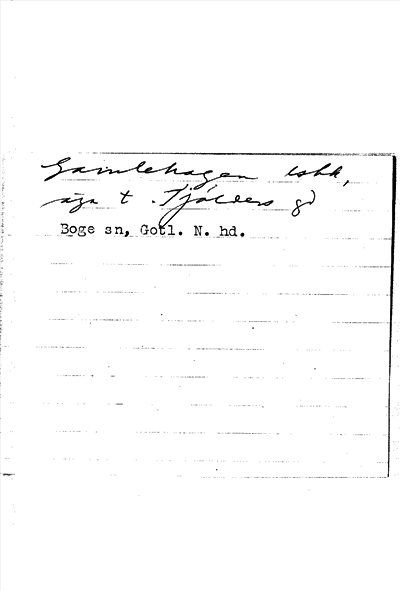 Gamlehagen
äga t. Tjälders gd
Boge sn, Gotl. N. hd.